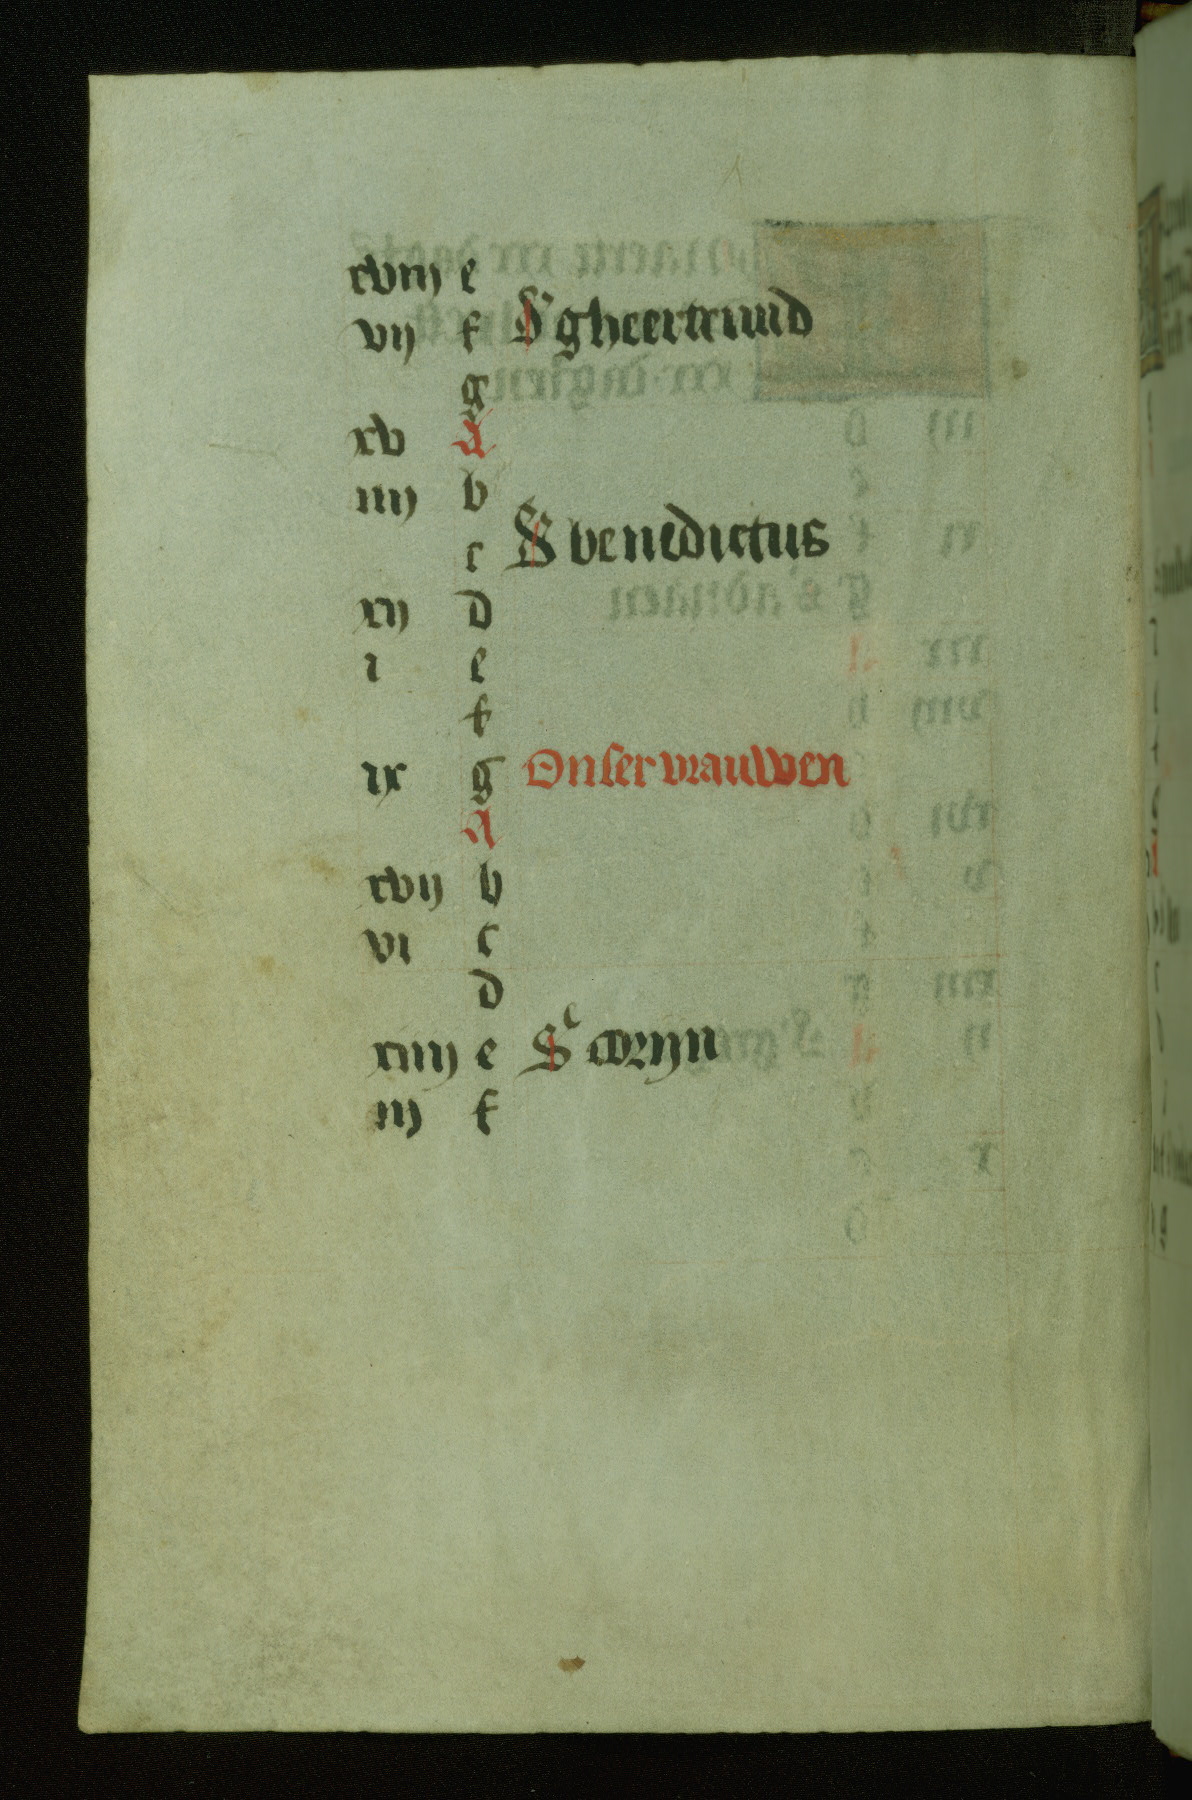 xviij e
vij f S gheertruud
g
xv A
iiij b
c S benedictus
xij d
i e
f
ix g Onser vrauwen
A
xvij b
vi c
d
xiiij e Sc
iij f